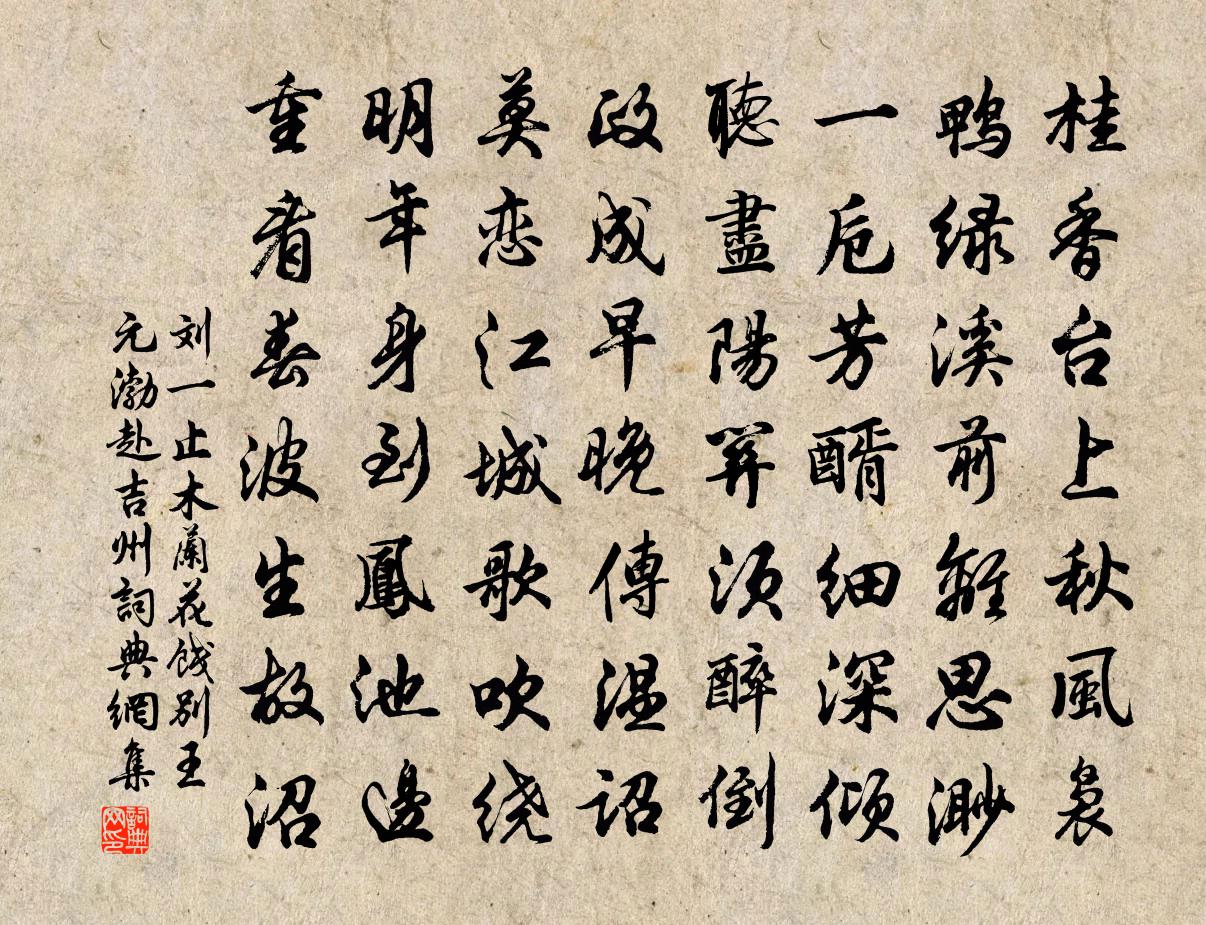 桂香台上秋風袅
鴨绿溪前離思渺
一卮芳醑细深倾
聽盡陽関须醉倒
政成早晚傳温詔
莫恋江城歌吹绕
明年身到鳳池邊
重看春波生故沼
刘一止木蘭花饯别王
元渤赴吉州詞典網集
詞典网印